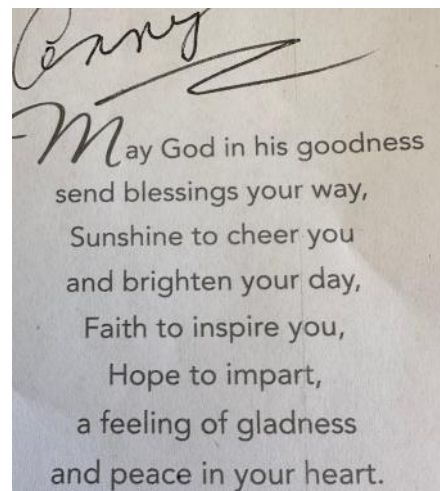 May God in his goodness
send blessings your way,
Sunshine to cheer you
and brighten your day,
Faith to inspire you,
Hope to impart,
a feeling of gladness
and peace in your heart.